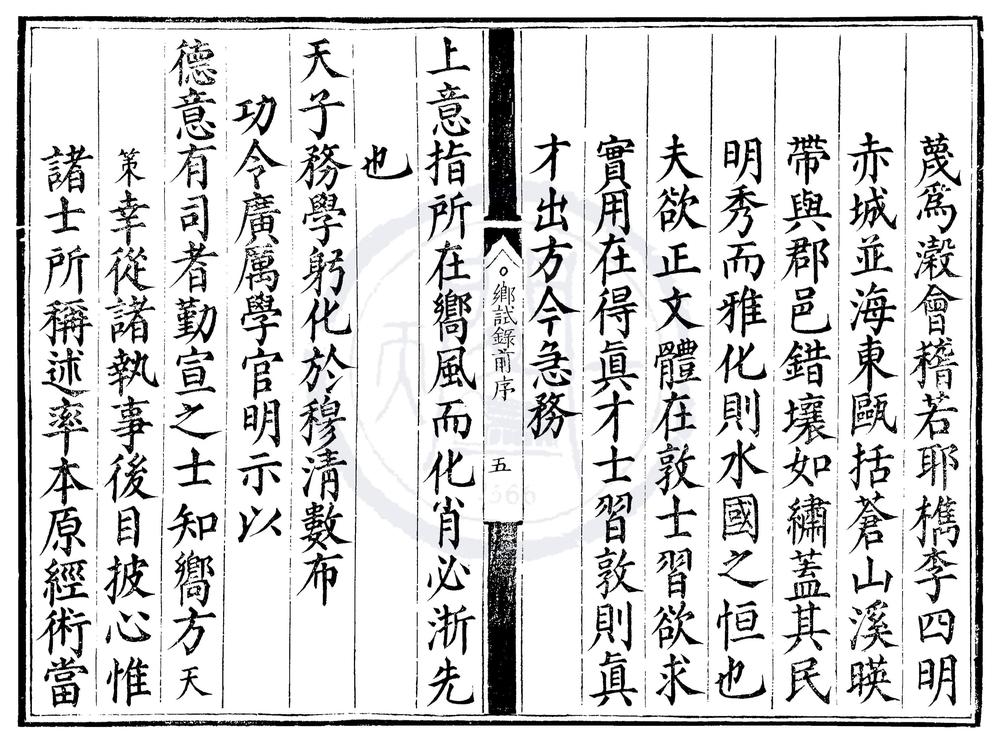 蔑爲澱會稽若耶檇李四明
赤城並海東甌括蒼山溪暎
帶與郡邑錯壤如繡蓋其民
明秀而雅化則水國之恒也
夫欲正文體在敦士習欲求
實用在得眞才士習敦則眞
才出方今急務
鄉試錄前序 五
上意指所在嚮風而化肖必浙先
也
天子務學躬化於穆淸數布
功令廣厲學官明示以
德意有司者勤宣之士知嚮方天
策幸從諸執事後目披心惟
諸士所稱述率本原經術當